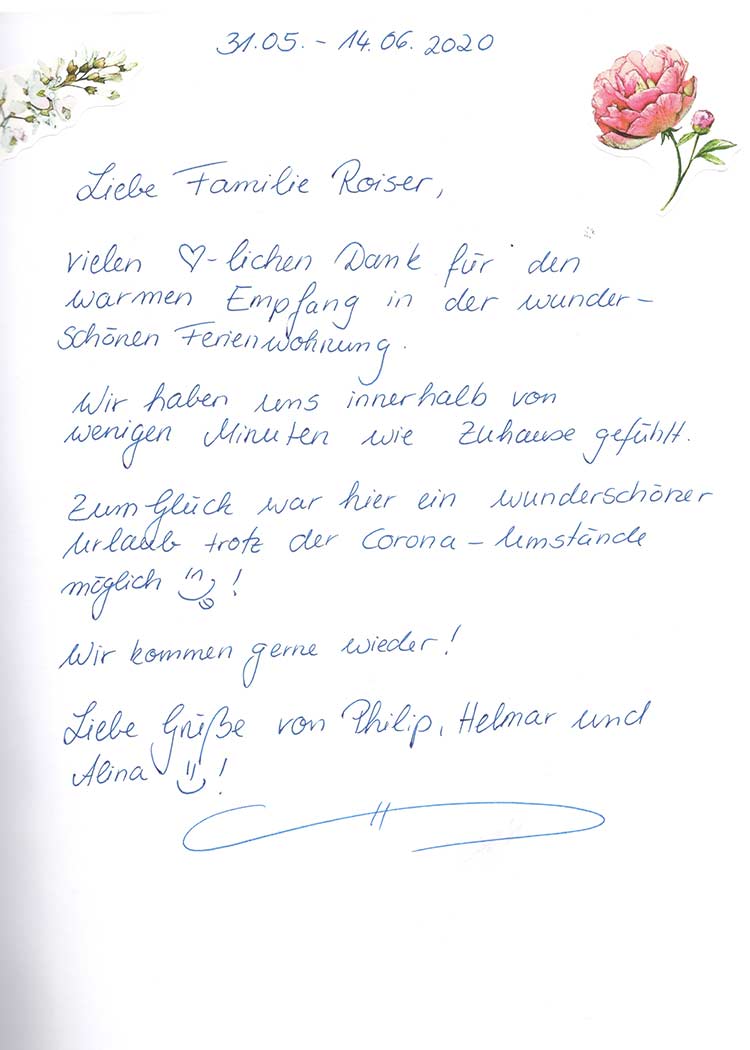 31.05. - 14.06. 2020
Liebe Familie Roiser,
vielen ♡-lichen Dank für den
warmen Empfang in der wunder-
schönen Ferienwohnung.
Wir haben uns innerhalb von
wenigen Minuten wie Zuhause gefühlt.
Zum Glück war hier ein wunderschöner
Urlaub trotz der Corona-Umstände
möglich !
Wir kommen gerne wieder!
Liebe Grüße von Philip, Helmar und
Alina !